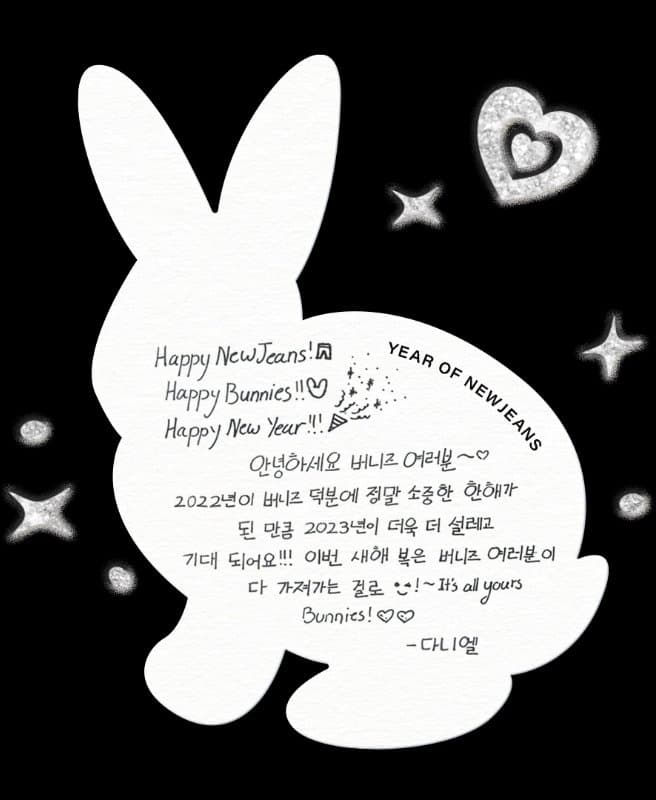 Happy NewJeans!
Happy Bunnies!!♡
Happy New Year!!!
YEAR OF NEWJEANS
안녕하세요 버니즈 여러분~♡
2022년이 버니즈 덕분에 정말 소중한 한해가
된 만큼 2023년이 더욱 더 설레고
기대 되어요!!! 이번 새해 복은 버니즈 여러분이
다 가져가는 걸로 !~It's all yours
Bunnies!♡♡
-다니엘